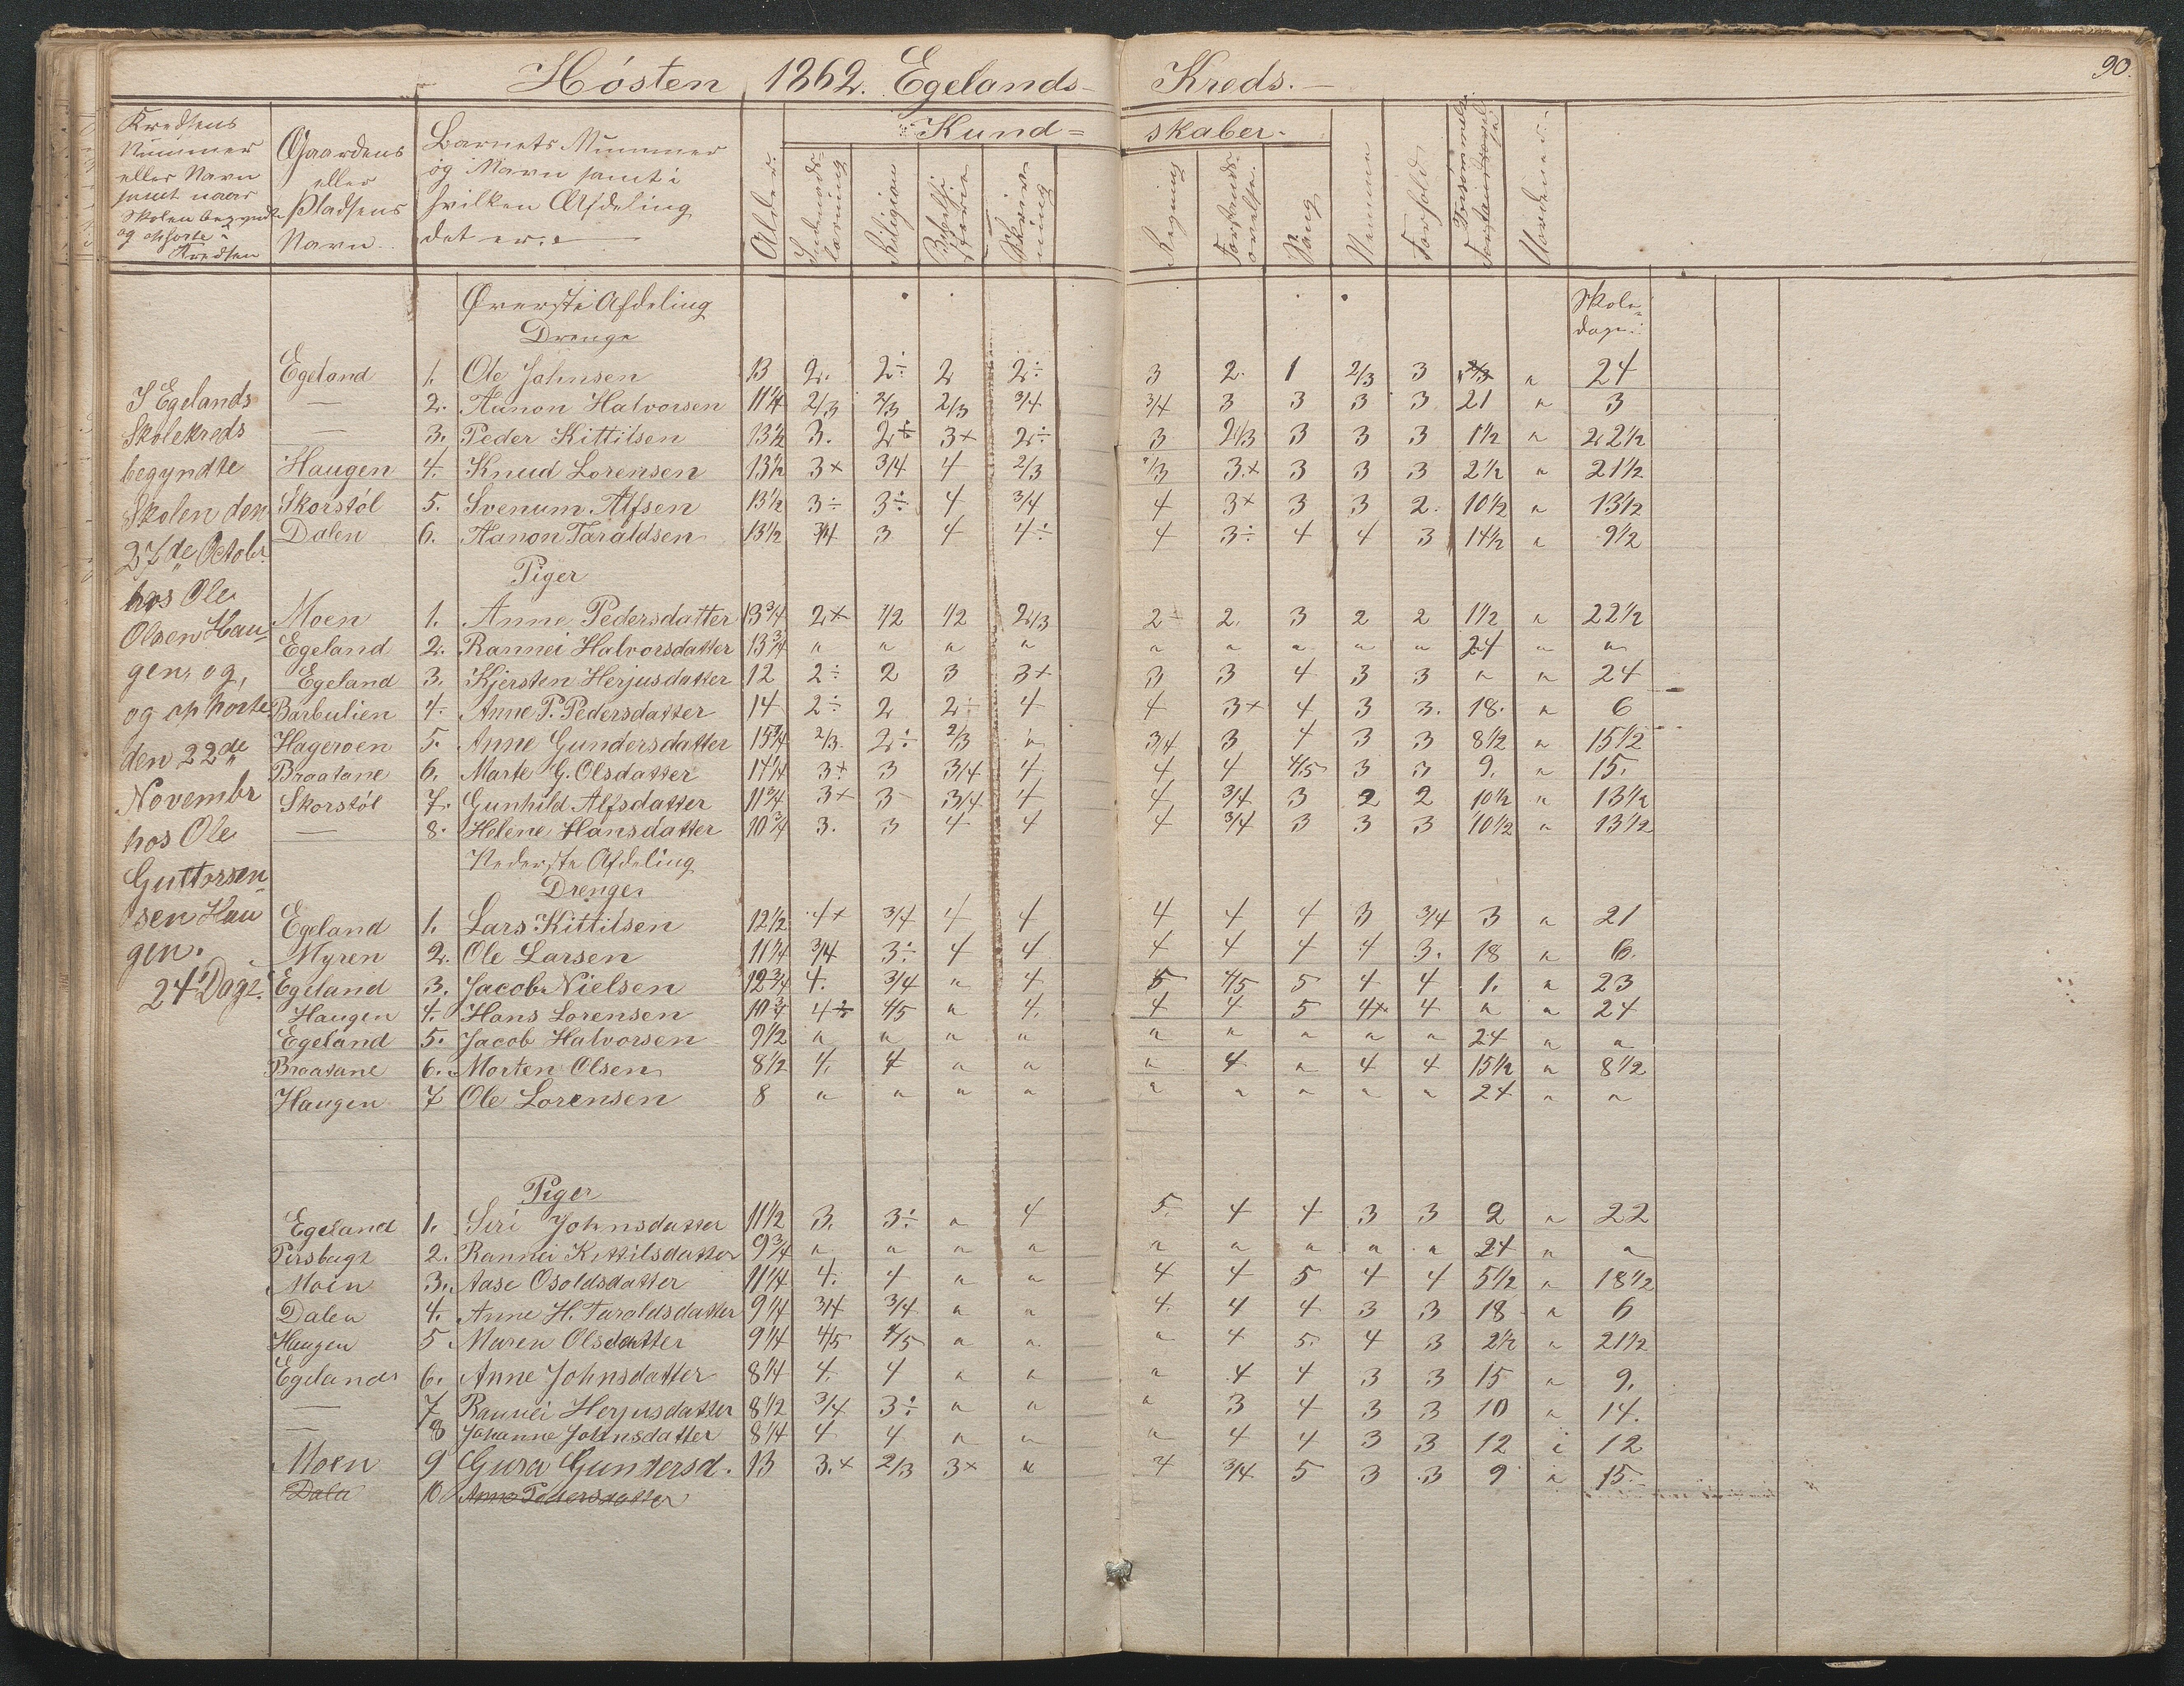 90.
Hósten 1862. Egelands- Kreds.-
Kredsens Nummer eller Navn samt naar Skolen begyndte og ophørte i Kredsen
Gaardens eller Pladsens Navn.
Barnets Nummer og Navn samt i hvilken Afdeling det er.
Alder.
Kund= skaber.
Religion
Skrivning
Regning
Sang
Nemme
Forhold
Skoledage.
I Egelands
Skolekreds
begyndte
Skolen den
27de Octobr.
hos Ole
Olsen Hau-
gen, og,
og ophorte
den 22de
Novembr
hos Ole
Guttorsen
sen Hau
gen.
24 Dage.
Øverste Afdeling
Drenge
Egeland 1. Ole Johnsen 13 2. 2÷ 2 2÷ 3 2. 1 2/3 3 " 24
— 2. Aanon Halvorsen 11 1/4 2/3 2/3 2/3 3/4 3/4 3 3 3 3 21 " 3
— 3. Peder Kittilsen 13 1/2 3. 2÷ 3+ 2÷ 3 2/3 3 3 3 1 1/2 " 22 1/2
Haugen 4. Knud Lorensen 13 1/2 3+ 3/4 4 2/3 2/3 3+ 3 3 3 2 1/2 " 21 1/2
Skorstól 5. Svenum Alfsen 13 1/2 3÷ 3÷ 4 3/4 4 3+ 3 3 2. 10 1/2 " 13 1/2
Dalen 6. Aanon Taraldsen 13 1/2 3/4 3 4 4÷ 4 3÷ 4 4 3 14 1/2 " 9 1/2
Piger
Moen 1. Anne Pedersdatter 13 3/4 2+ 1/2 1/2 2/3 2 2. 3 2 2 1 1/2 " 22 1/2
Egeland 2. Rannei Halvorsdatter 13 3/4 " " " " " " " " " 24 " "
Egeland 3. Kjersten Herjusdatter 12 2÷ 2 3 3+ 3 3 4 3 3 " " 24
Barbulien 4. Anne P. Pedersdatter 14 2÷ 2 2÷ 4 4 3+ 4 3 3. 18. " 6
Hageroen 5. Anne Gundersdatter 15 3/4 2/3 2÷ 2/3 " 3/4 3 4 3 3 8 1/2 " 15 1/2
Braatane 6. Marte G. Olsdatter 14 1/4 3+ 3 3/4 4 4 4 4/5 3 3 9. " 15.
Skorstól 7. Gunhild Alfsdatter 11 3/4 3+ 3- 3/4 4 4 3/4 3 2 2 10 1/2 " 13 1/2
— 8. Helene Hansdatter 10 3/4 3. 3 4 4 4 3/4 3 3 3 10 1/2 " 13 1/2
Nederste Afdeling
Drenge
Egeland 1. Lars Kittilsen 12 1/2 4+ 3/4 4 4 4 4 4 3 3/4 3 " 21
Myren 2. Ole Larsen 11 1/4 3/4 3÷ 4 4 4 4 4 4 3. 18 " 6.
Egeland 3. Jacob Nielsen 12 3/4 4. 3/4 " 4 5 4/5 5 4 4 1. " 23
Haugen 4. Hans Lorensen 10 3/4 4÷ 4/5 " 4. 4 4 5 4+ 4 " " 24
Egeland 5. Jacob Halvorsen 9 1/2 " " " " " " " " " 24 " "
Braatane 6. Morten Olsen 8 1/2 4. 4 " " " 4 " 4 4 15 1/2 " 8 1/2
Haugen 7 Ole Lorensen 8 " " " " " " " " " 24 " "
Piger
Egeland 1. Siri Johnsdatter 11 1/2 3. 3÷ " 4 5. 4 4 3 3 2 " 22
2. Rannei Kittilsdatter 9 3/4 " " " " " " " " " 24 " "
Moen 3. Aase Osoldsdatter 11 1/4 4. 4 " " 4 4 5 4 4 5 1/2 " 18 1/2
Dalen 4. Anne H. Taroldsdatter 9 1/4 3/4 3/4 " " 4. 4 4 3 3 18 " 6
Haugen 5 Maren Olsdatter 9 1/4 4/5 4/5 " " " 4 5. 4 3 2 1/2 " 21 1/2
Egelands 6. Anne Johnsdatter 8 1/4 4. 4 " " " 4 4 3 3 15 " 9.
— 7 Rannei Herjusdatter 8 1/2 3/4 3÷ " " " 3 4 3 3 10 " 14.
— 8 Johanne Johnsdatter 8 1/4 4 4 " " " 4 4 3 3 12 " 12
Moen 9 Gura Gundersd. 13 3.+ 2/3 3+ " 4 3/4 5 3 3 9 " 15.
Dalen 10 Anne Pedersdatter